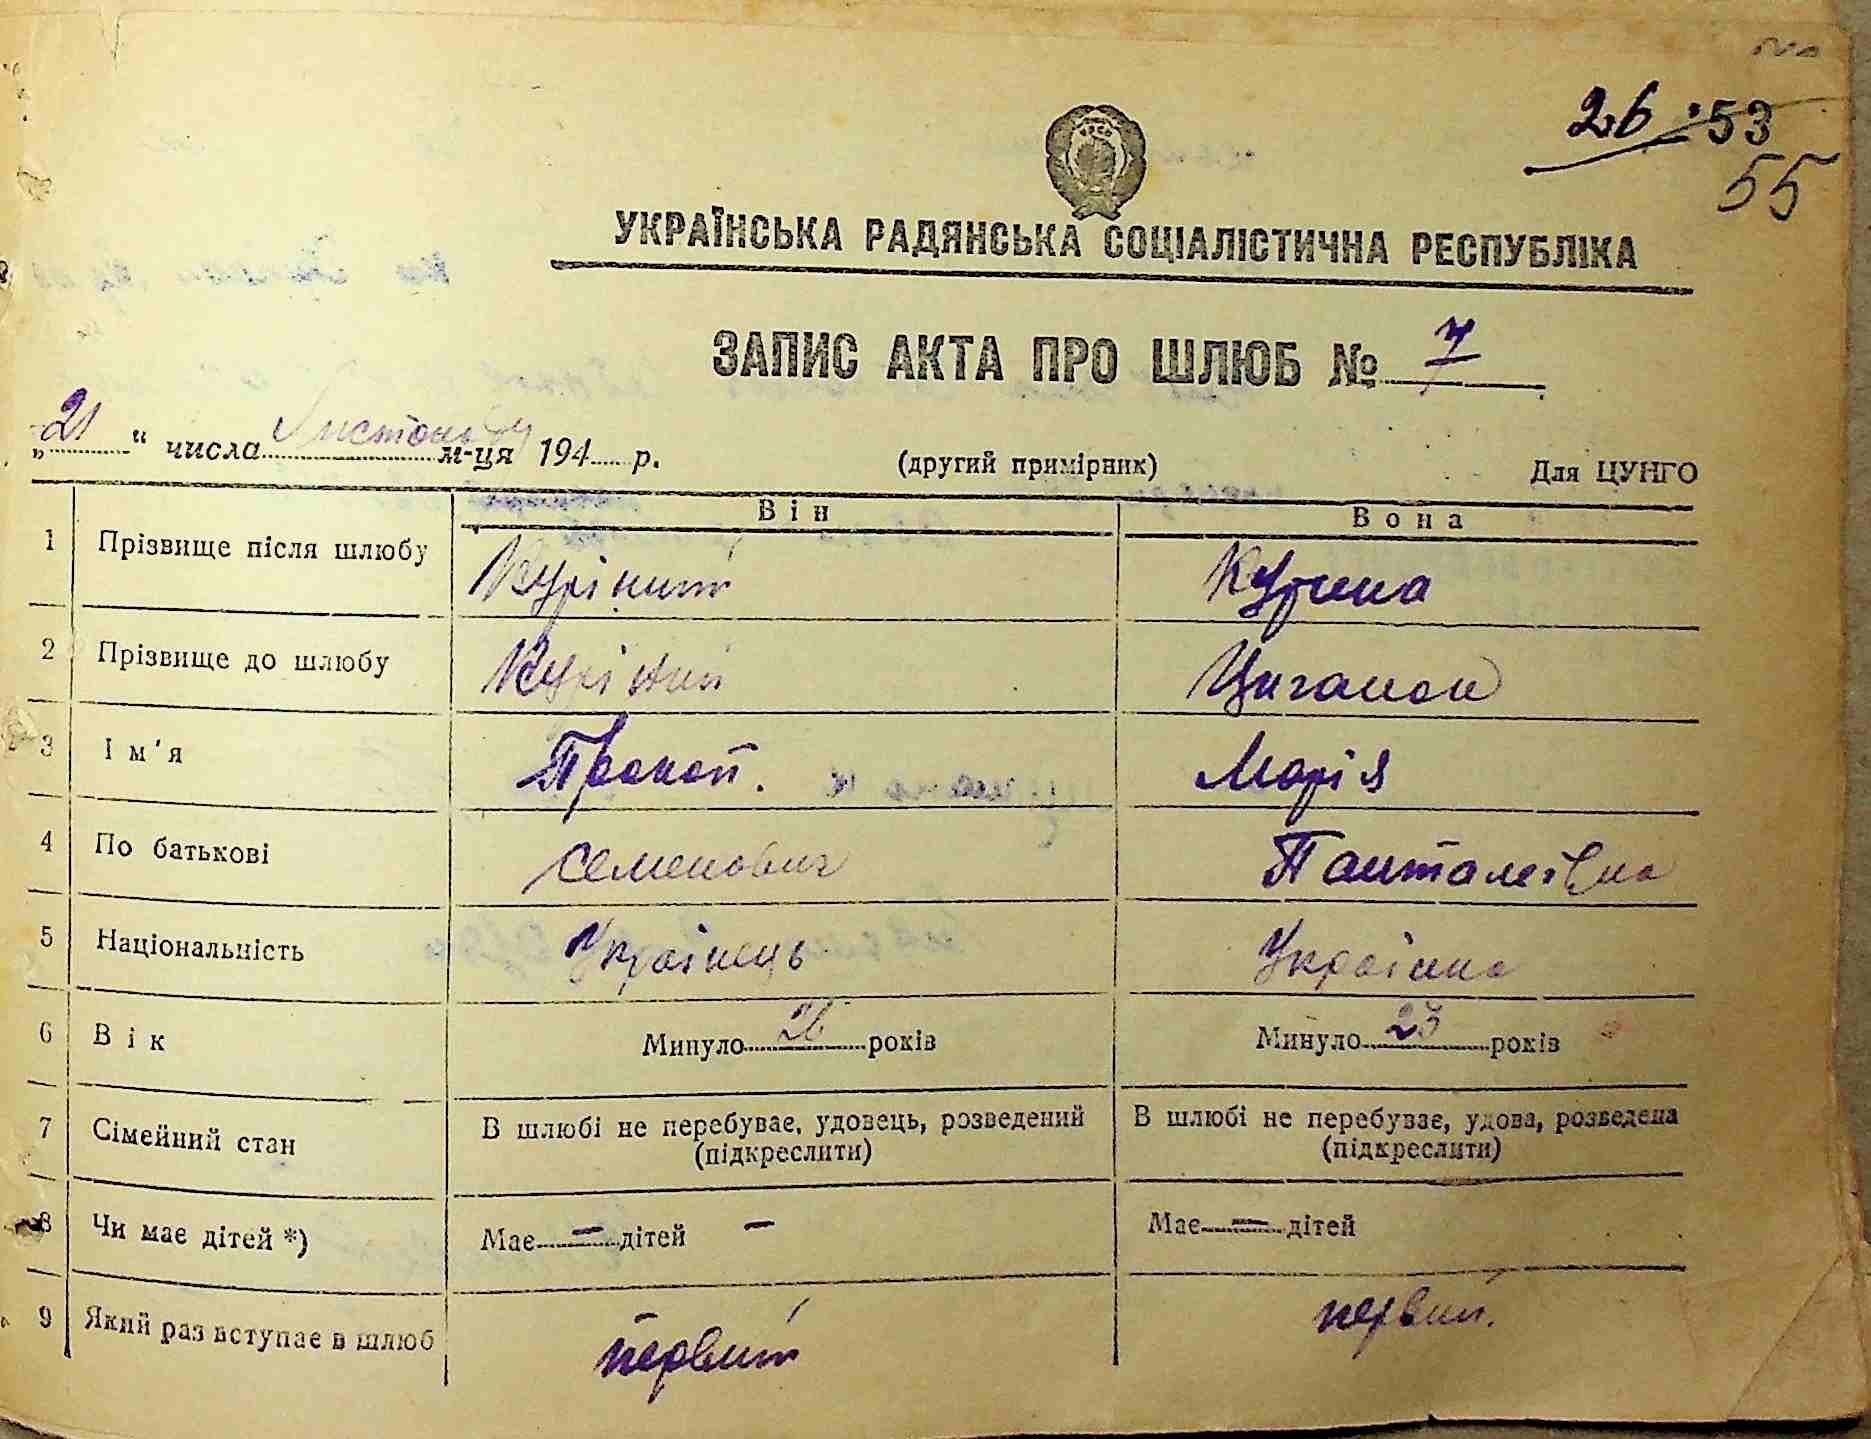 26 53
55
УКРАЇНСЬКА РАДЯНСЬКА СОЦІАЛІСТИЧНА РЕСПУБЛІКА
ЗАПИС АКТА ПРО ШЛЮБ № 7
„21“ числа Листопаду м-ця 194 р. (другий примірник) Для ЦУНГО
Він Вона
1 Прізвище після шлюбу Куріний Куріна
2 Прізвище до шлюбу Куріний Циганок
3 Ім'я Прокоп. Марія
4 По батькові Семенович Панталеївна
5 Національність Українець Українка
6 Вік Минуло 26 років Минуло 23 років
7 Сімейний стан В шлюбі не перебуває, удовець, розведений В шлюбі не перебуває, удова, розведена
(підкреслити) (підкреслити)
8 Чи має дітей *) Має — дітей — Має — дітей
9 Який раз вступає в шлюб первий первий.